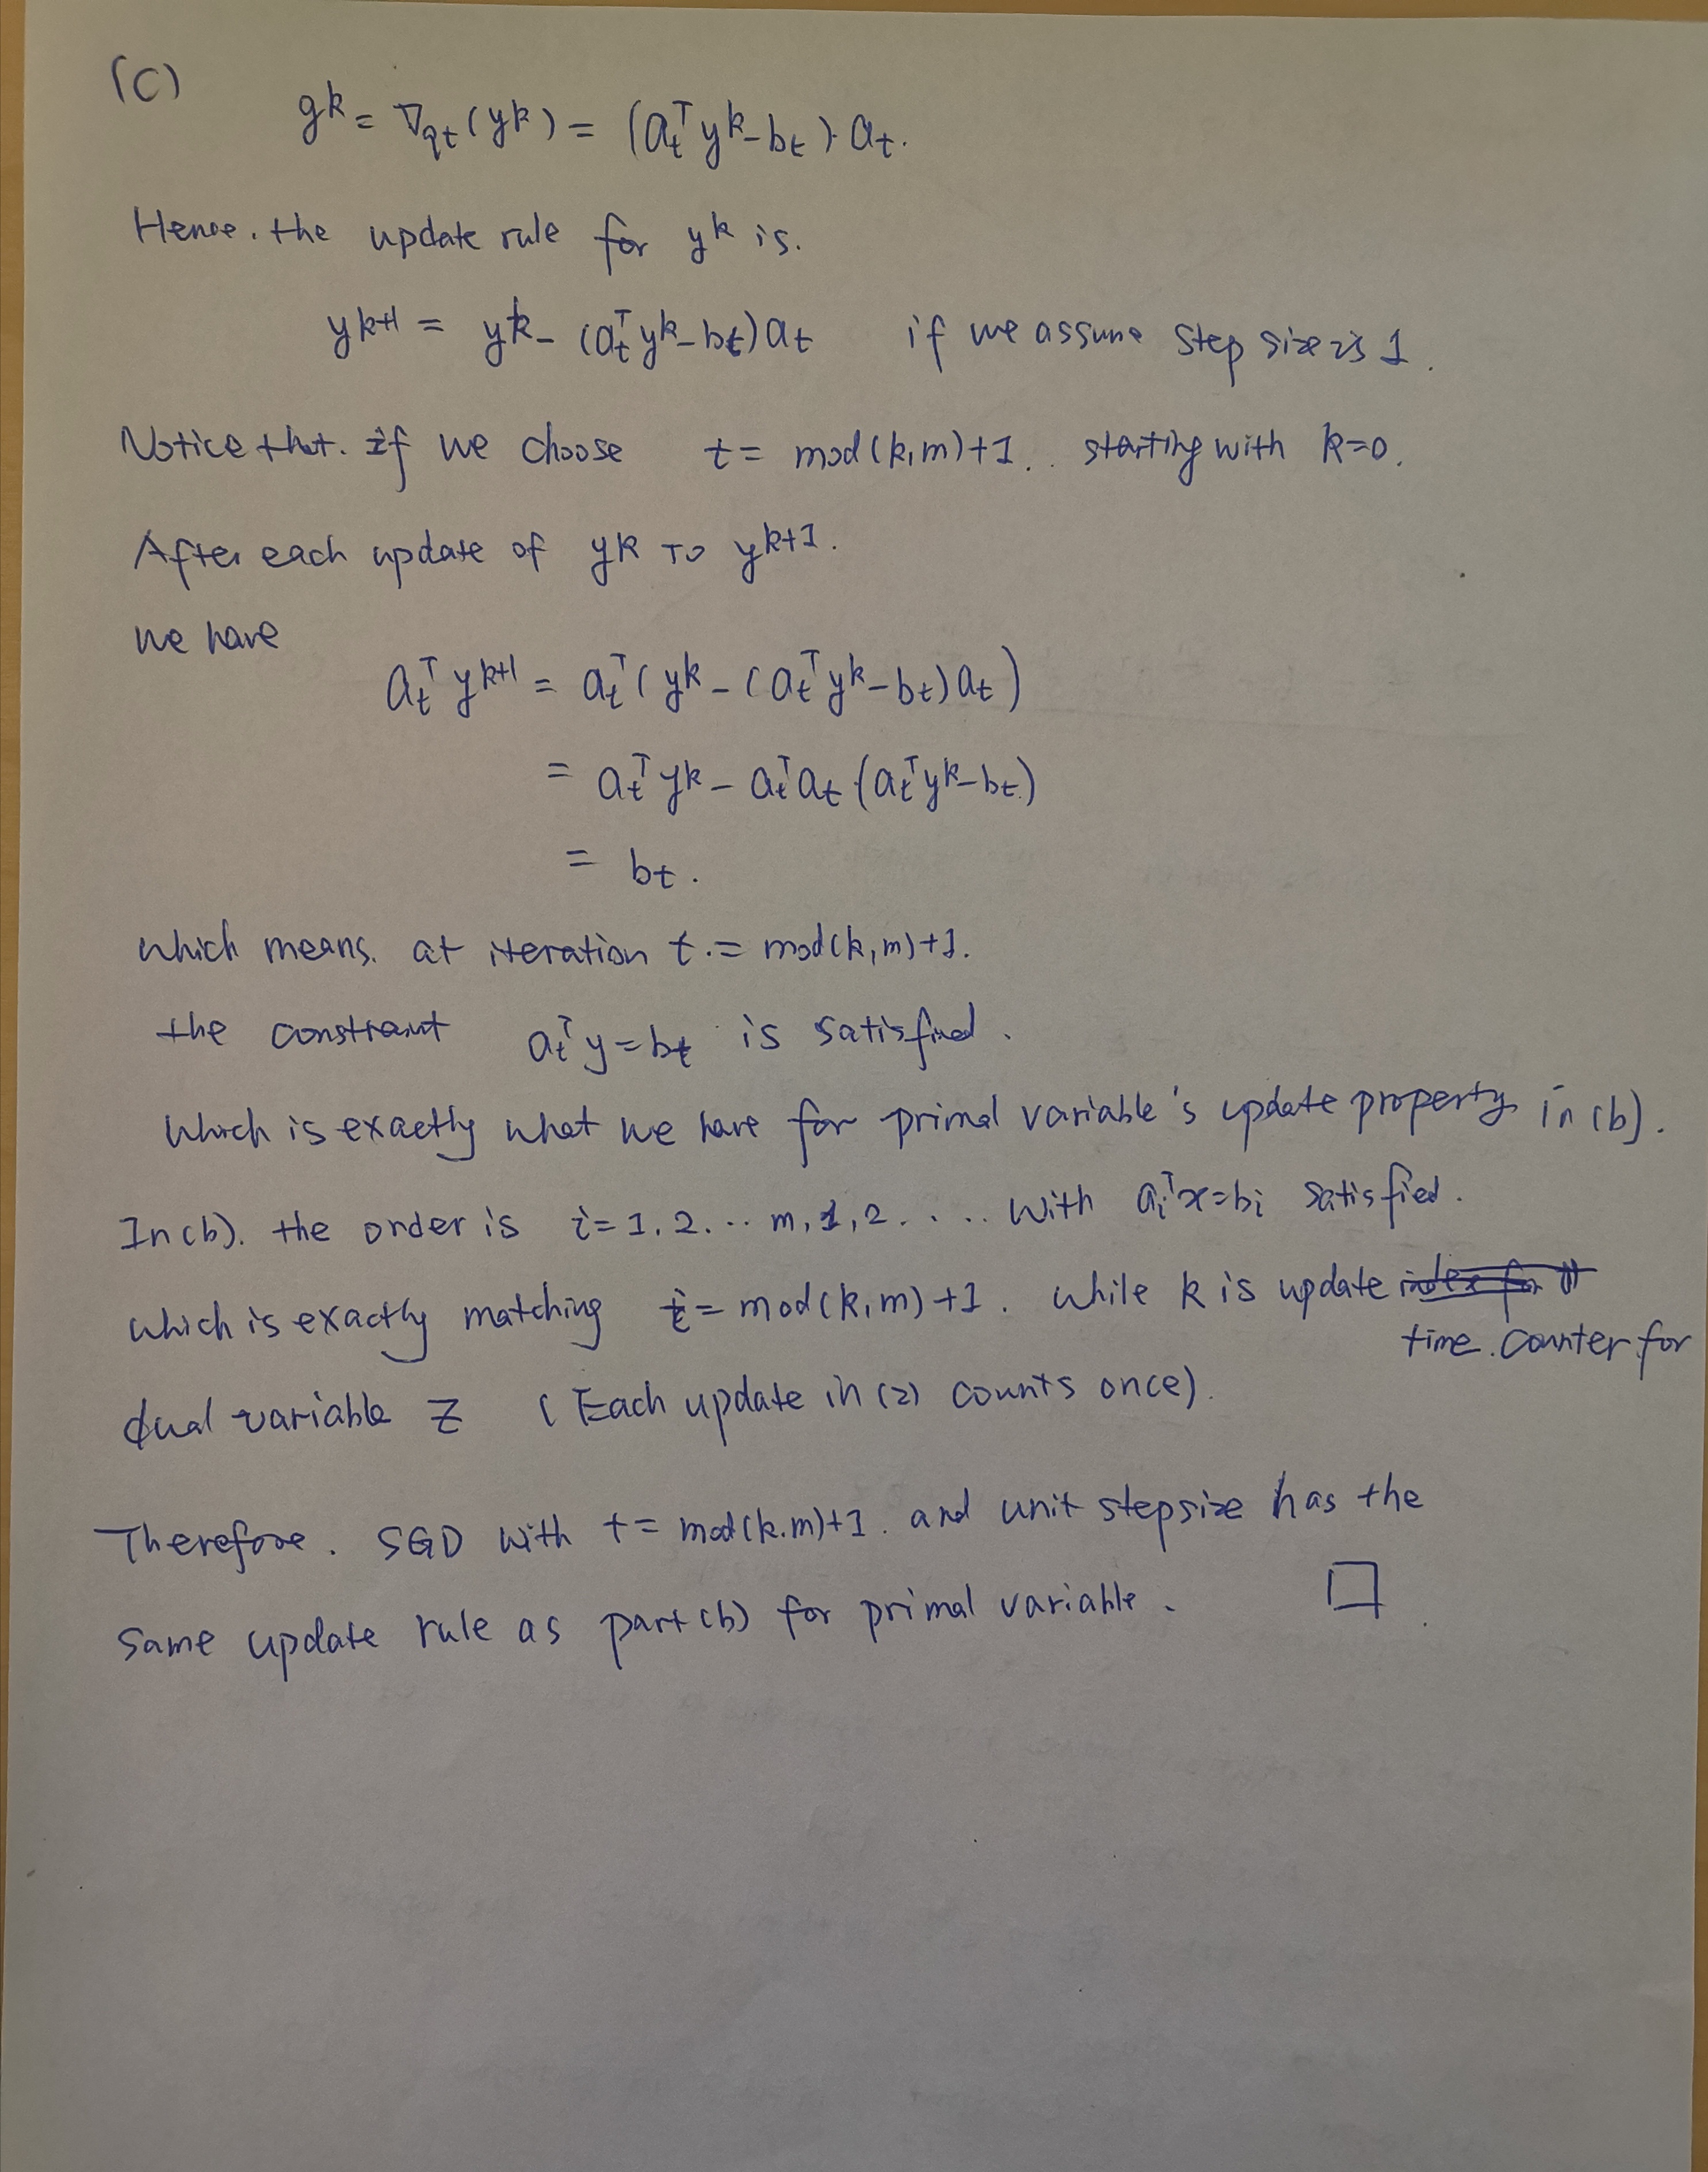 (C)
g^k = ∇q_t(y^k) = (a_t^T y^k - b_t)·a_t.
Hence, the update rule for y^k is.
y^{k+1} = y^k - (a_t^T y^k - b_t)a_t if we assume step size is 1.
Notice that. if we choose t = mod(k,m)+1. starting with k=0.
After each update of y^k to y^{k+1}.
we have
a_t^T y^{k+1} = a_t^T(y^k - (a_t^T y^k - b_t)a_t)
= a_t^T y^k - a_t^T a_t (a_t^T y^k - b_t)
= b_t.
which means. at iteration t = mod(k,m)+1.
the constraint a_t^T y = b_t is satisfied.
Which is exactly what we have for primal variable's update property in (b).
In (b). the order is i=1.2... m,1,2.... With a_i^T x=b_i satisfied.
which is exactly matching i = mod(k,m)+1. while k is update
time counter for
dual variable z (Each update in (2) counts once).
Therefore. SGD with t = mod(k.m)+1. and unit stepsize has the
same update rule as part (b) for primal variable. □